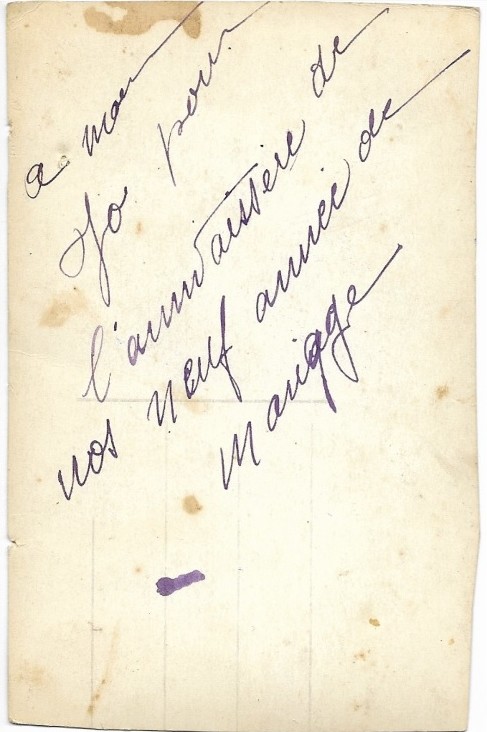 a mon
Jo pour
l'annivaissere de
nos neuf année de
mariage